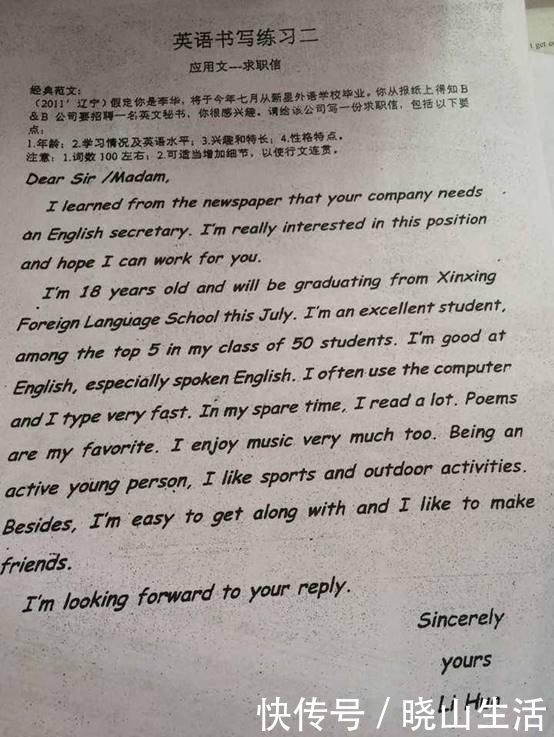 英语书写练习二
应用文---求职信
经典范文:
(2011' 辽宁) 假定你是李华, 将于今年七月从新星外语学校毕业。你从报纸上得知 B
&B 公司要招聘一名英文秘书, 你很感兴趣。请给该公司写一份求职信, 包括以下要
点:
1.年龄; 2.学习情况及英语水平; 3.兴趣和特长; 4.性格特点。
注意: 1.词数 100 左右; 2.可适当增加细节, 以使行文连贯。
Dear Sir /Madam,
I learned from the newspaper that your company needs
an English secretary. I'm really interested in this position
and hope I can work for you.
I'm 18 years old and will be graduating from Xinxing
Foreign Language School this July. I'm an excellent student,
among the top 5 in my class of 50 students. I'm good at
English, especially spoken English. I often use the computer
and I type very fast. In my spare time, I read a lot. Poems
are my favorite. I enjoy music very much too. Being an
active young person, I like sports and outdoor activities.
Besides, I'm easy to get along with and I like to make
friends.
I'm looking forward to your reply.
Sincerely
yours
Li Hua
快传号 / 晓山生活